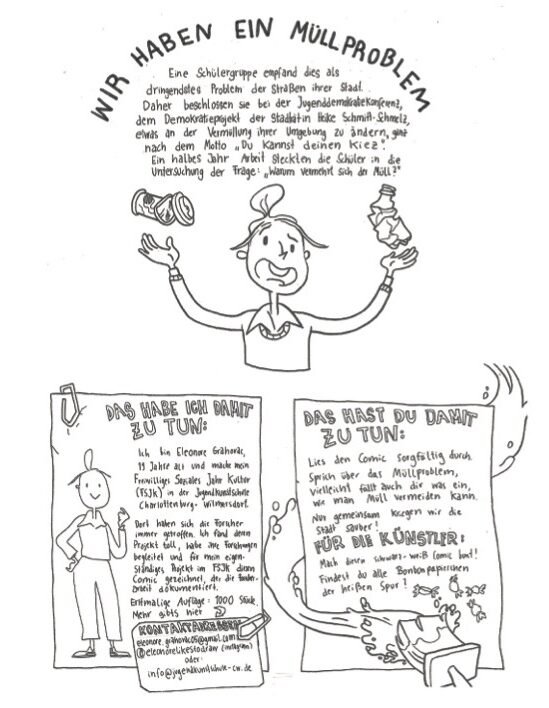 WIR HABEN EIN MÜLLPROBLEM
Eine Schülergruppe empfand dies als
dringendstes Problem der Straßen ihrer Stadt.
Daher beschlossen sie bei der Jugenddemokratiekonferenz,
dem Demokratieprojekt der Stadträtin Heike Schmitt-Schmelz,
etwas an der Vermüllung ihrer Umgebung zu ändern, ganz
nach dem Motto „Du kannst deinen Kiez".
Ein halbes Jahr Arbeit steckten die Schüler in die
Untersuchung der Frage: „Warum vermehrt sich der Müll?"
DAS HABE ICH DAMIT
ZU TUN:
Ich bin Eleonore
19 Jahre alt und mache mein
Freiwilliges Soziales Jahr Kultur
(FSJK) in der Jugendkunstschule
Charlottenburg-Wilmersdorf.
Dort haben sich die Forscher
immer getroffen. Ich fand deren
Projekt toll, habe ihre Forschungen
begleitet und für mein eigen-
ständiges Projekt im FSJK diesen
Comic gezeichnet, der die
Arbeit dokumentiert.
Erstmalige Auflage: 1000 Stück.
Mehr gibts hier
KONTAKTADRESSEN
@eleonorelikestodraw (instagram)
oder:
info@jugendkunstschule-cw.de
DAS HAST DU DAMIT
ZU TUN:
Lies den Comic sorgfältig durch.
Sprich über das Müllproblem,
vielleicht fällt auch dir was ein,
wie man Müll vermeiden kann.
Nur gemeinsam kriegen wir die
Stadt sauber!
FÜR DIE KÜNSTLER:
Mach deinen schwarz-weiß Comic bunt!
Findest du alle Bonbonpapierchen
der heißen Spur?